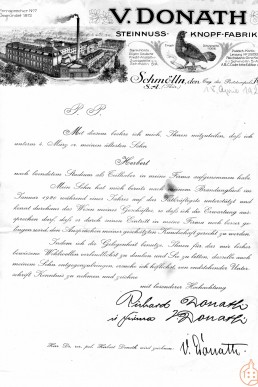 Fernsprecher Nº7
Gegründet 1872
V. DONATH
STEINNUSS- KNOPF-FABRIK
Schmölln, den
S.A. (Thür.)
P. P.
Mit diesem beehre ich mich, Ihnen mitzuteilen, daß ich
unterm 1. März cr. meinen ältesten Sohn
Herbert
nach beendetem Studium als Teilhaber in meine Firma aufgenommen habe.
Mein Sohn hat mich bereits nach dem Brandunglück im
Januar 1920 während eines Jahres auf das
und
kennt durchaus das Wesen meines Geschäftes, so daß ich die Erwartung aus-
sprechen darf, daß es durch seinen Eintritt in meine Firma ge-
lingen wird, den Ansprüchen meiner geschätzten Kundschaft gerecht zu werden.
Indem ich die Gelegenheit benutze, Ihnen für das mir bisher
bewiesene Wohlwollen verbindlichst zu danken und Sie zu bitten, dasselbe auch
meinem Sohne entgegenzubringen, ersuche ich höflichst, von nachstehender Unter-
schrift Kenntnis zu nehmen und zeichne
mit besonderer Hochachtung
Richard Donath
i. Firma V. Donath
Herr Dr. rer. pol. Herbert Donath wird zeichnen: V. Donath.